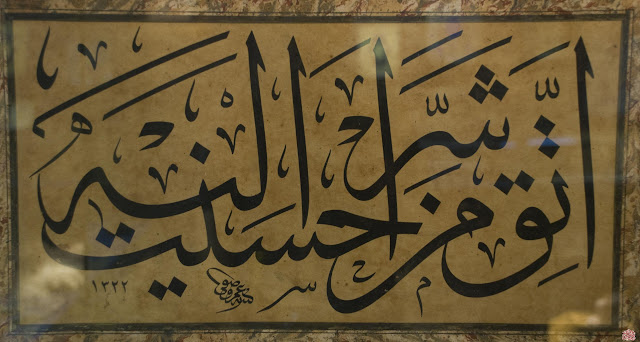 اتّقِ شرَّ من احسنت اليه
١٣٢٢